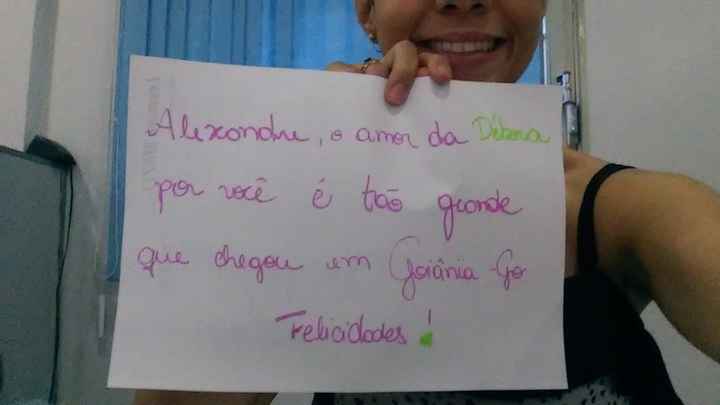 Alexandre, o amor da Débora
por você é tão grande
que chegou em Goiânia-Go
Felicidades!